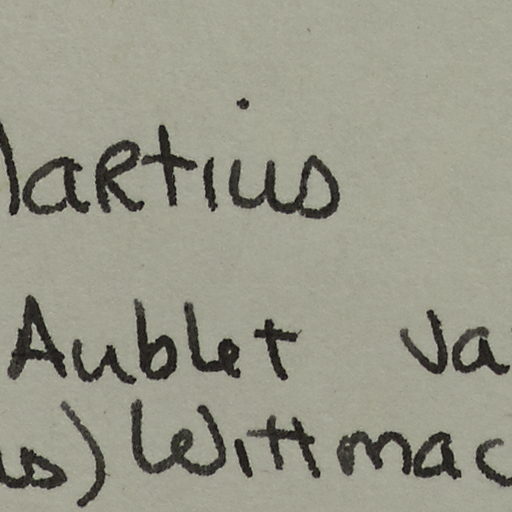 Martius
Aublet va
us) Wittmac